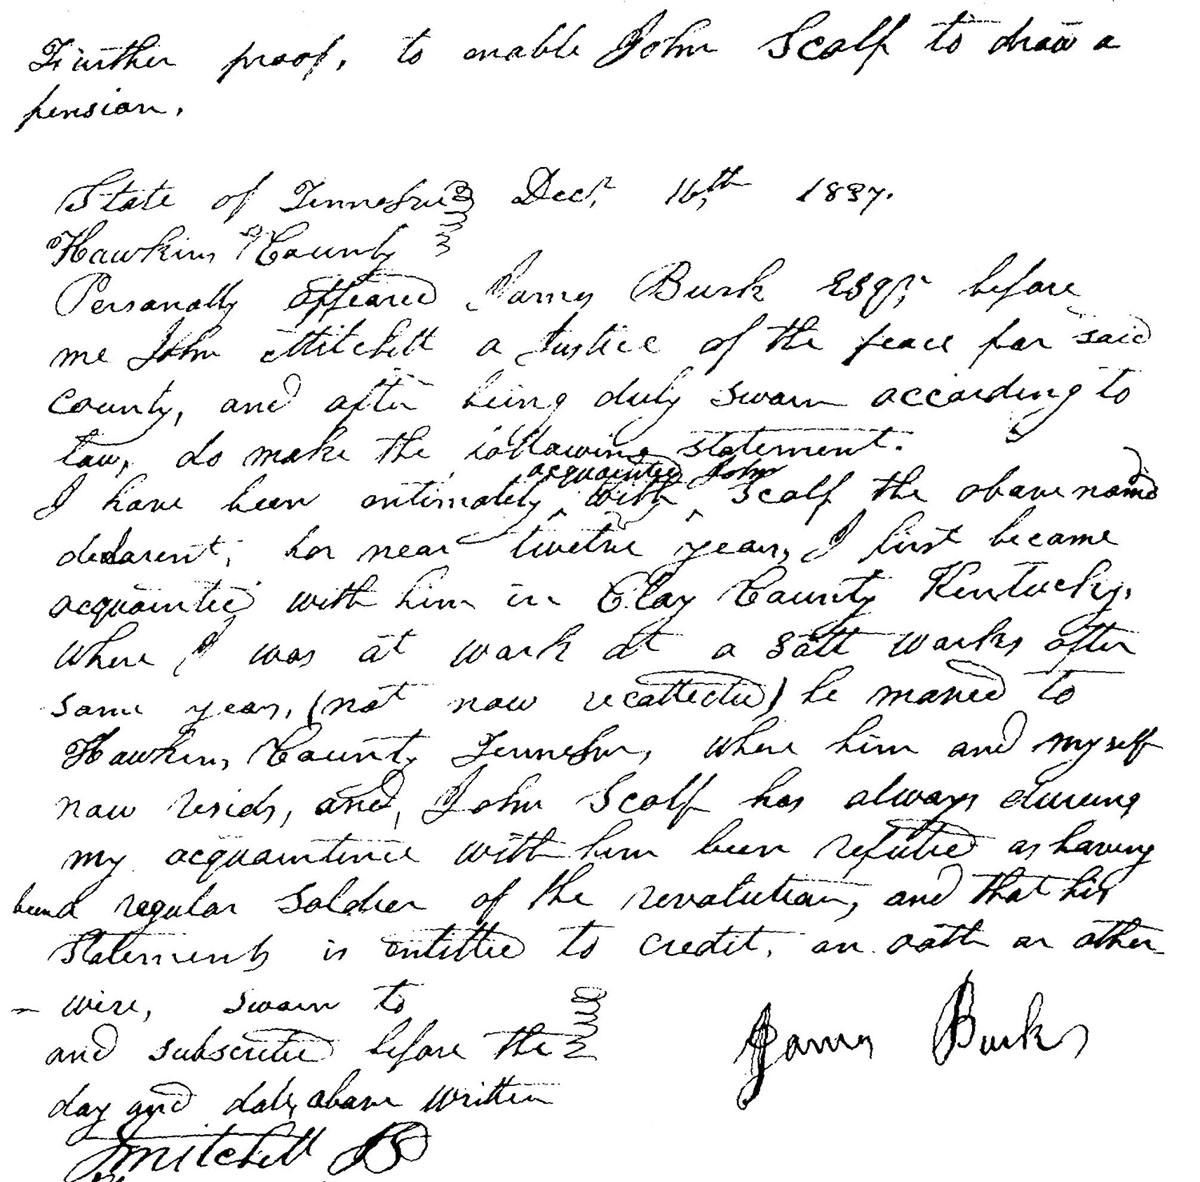 Further proof, to enable John Scalf to draw a
pension.
State of Tennessee Decr. 16th 1837.
Hawkins County
Personally appeared James Burk Esqr. before
me John Mitchell a Justice of the peace for said
county, and after being duly sworn according to
law, do make the following statement.
acquainted John
I have been intimately with Scalf the above named
declarent, for near twelve years, I first became
acquainted with him in Clay County Kentucky.
where I was at work at a salt works after
some years, (not now recollected) he moved to
Hawkins County Tennessee, where him and myself
now resids, and, John Scalf has always during
my acquaintence with him been reputed as having
been a regular Soldier of the revolution, and that his
Statements is entitled to credit. on oath or other-
-wise, sworn to
and subscribed before the
day and date above written
James Burk
JMitchell